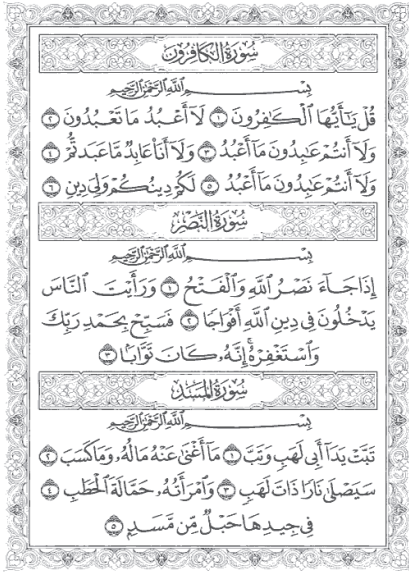 سُورَةُ الكَافِرُونَ
بِسْمِ اللَّهِ الرَّحْمَٰنِ الرَّحِيمِ
قُلْ يَٰٓأَيُّهَا الْكَٰفِرُونَ ١ لَآ أَعْبُدُ مَا تَعْبُدُونَ ٢
وَلَآ أَنتُمْ عَٰبِدُونَ مَآ أَعْبُدُ ٣ وَلَآ أَنَا۠ عَابِدٌ مَّا عَبَدتُّمْ ٤
وَلَآ أَنتُمْ عَٰبِدُونَ مَآ أَعْبُدُ ٥ لَكُمْ دِينُكُمْ وَلِىَ دِينِ ٦
سُورَةُ النَّصْرِ
بِسْمِ اللَّهِ الرَّحْمَٰنِ الرَّحِيمِ
إِذَا جَآءَ نَصْرُ اللَّهِ وَالْفَتْحُ ١ وَرَأَيْتَ النَّاسَ
يَدْخُلُونَ فِى دِينِ اللَّهِ أَفْوَاجًا ٢ فَسَبِّحْ بِحَمْدِ رَبِّكَ
وَاسْتَغْفِرْهُ ۚ إِنَّهُۥ كَانَ تَوَّابًۢا ٣
سُورَةُ المَسَدِ
بِسْمِ اللَّهِ الرَّحْمَٰنِ الرَّحِيمِ
تَبَّتْ يَدَآ أَبِى لَهَبٍ وَتَبَّ ١ مَآ أَغْنَىٰ عَنْهُ مَالُهُۥ وَمَا كَسَبَ ٢
سَيَصْلَىٰ نَارًا ذَاتَ لَهَبٍ ٣ وَامْرَأَتُهُۥ حَمَّالَةَ الْحَطَبِ ٤
فِى جِيدِهَا حَبْلٌ مِّن مَّسَدٍۭ ٥